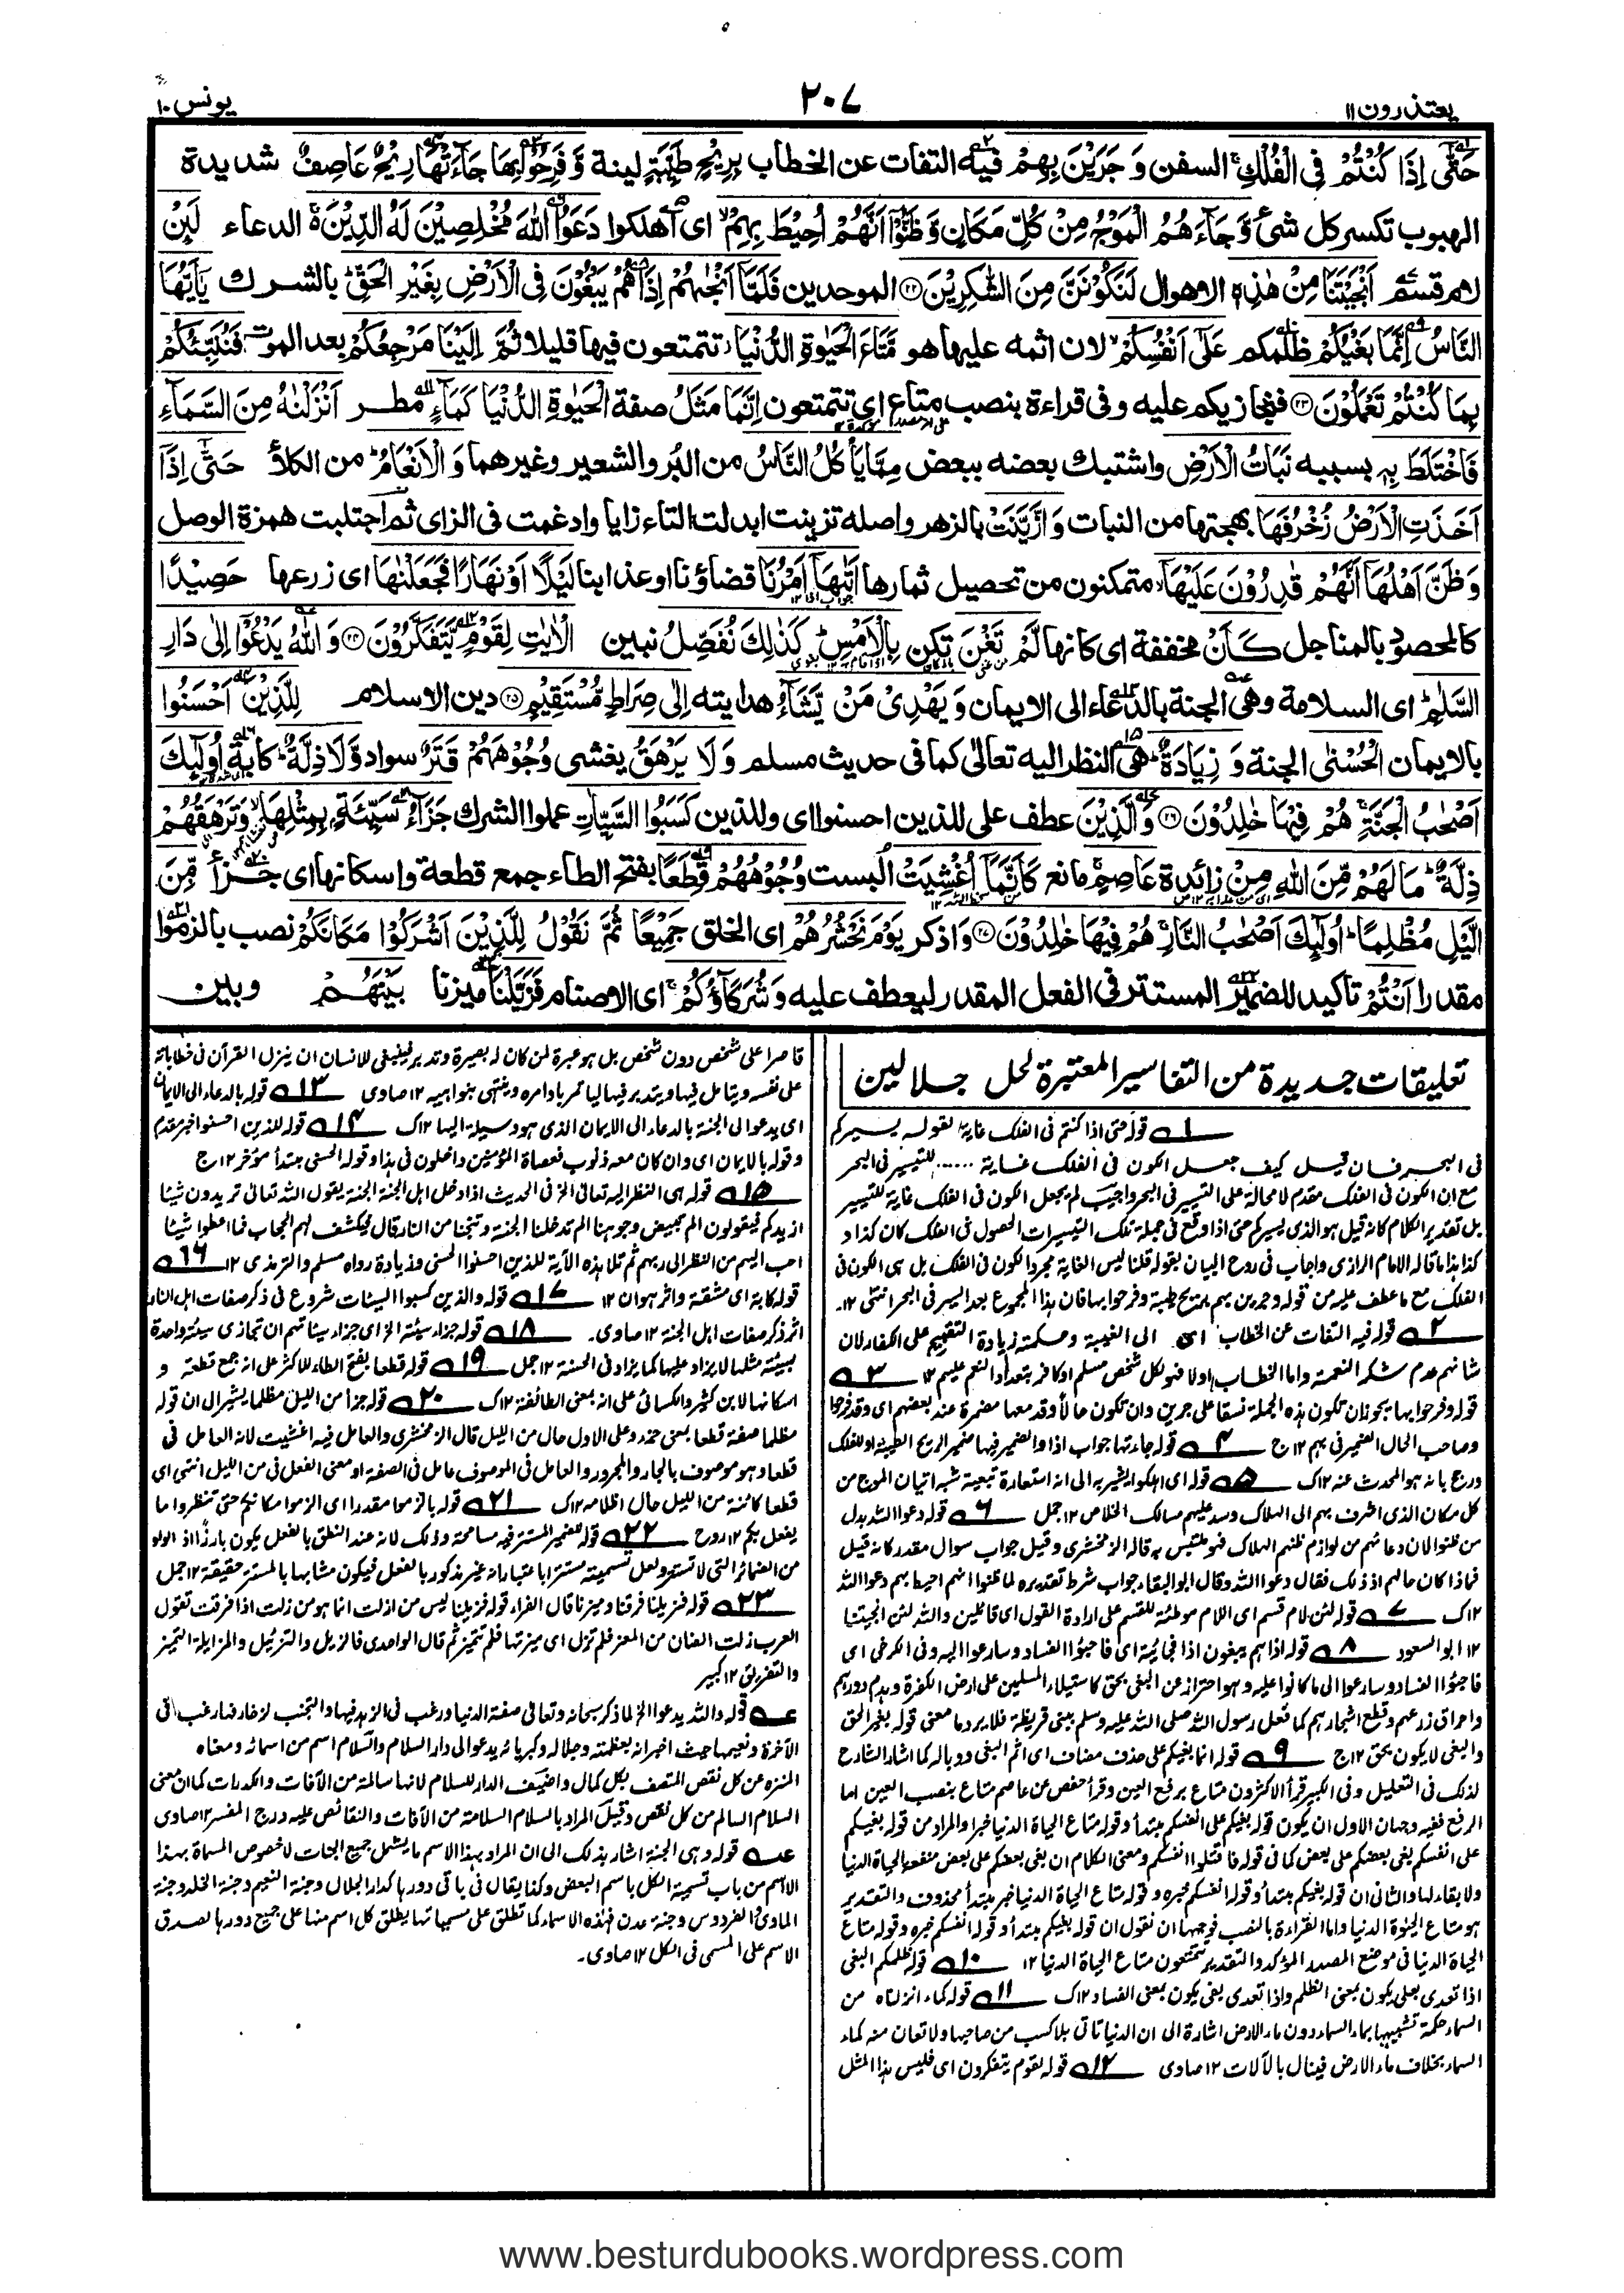 يعتذرون ١١
٢٠٧
يونس ١٠
حَتّٰى اِذَا كُنْتُمْ فِى الْفُلْكِ السفن وَجَرَيْنَ بِهِمْ فيه التفات عن الخطاب بِرِيْحٍ طَيِّبَةٍ لينة وَّفَرِحُوْا بِهَا جَآءَتْهَا رِيْحٌ عَاصِفٌ شديدة
الهبوب تكسر كل شئ وَّجَآءَهُمُ الْمَوْجُ مِنْ كُلِّ مَكَانٍ وَّظَنُّوْٓا اَنَّهُمْ اُحِيْطَ بِهِمْ اى اهلكوا دَعَوُا اللّٰهَ مُخْلِصِيْنَ لَهُ الدِّيْنَ الدعاء لَئِنْ
لام قسم اَنْجَيْتَنَا مِنْ هٰذِهٖ الاهوال لَنَكُوْنَنَّ مِنَ الشّٰكِرِيْنَ ٢٢ الموحدين فَلَمَّآ اَنْجٰهُمْ اِذَا هُمْ يَبْغُوْنَ فِى الْاَرْضِ بِغَيْرِ الْحَقِّ بالشرك يٰٓاَيُّهَا
النَّاسُ اِنَّمَا بَغْيُكُمْ ظلمكم عَلٰٓى اَنْفُسِكُمْ لان اثمه عليها هو مَّتَاعَ الْحَيٰوةِ الدُّنْيَا تتمتعون فيها قليلا ثُمَّ اِلَيْنَا مَرْجِعُكُمْ بعد الموت فَنُنَبِّئُكُمْ
بِمَا كُنْتُمْ تَعْمَلُوْنَ ٢٣ فنجازيكم عليه وفى قراءة بنصب متاع اى تتمتعون اِنَّمَا مَثَلُ صفة الْحَيٰوةِ الدُّنْيَا كَمَآءٍ مطر اَنْزَلْنٰهُ مِنَ السَّمَآءِ
فَاخْتَلَطَ بِهٖ بسببه نَبَاتُ الْاَرْضِ واشتبك بعضه ببعض مِمَّا يَاْكُلُ النَّاسُ من البُر والشعير وغيرهما وَالْاَنْعَامُ من الكلأ حَتّٰٓى اِذَآ
اَخَذَتِ الْاَرْضُ زُخْرُفَهَا بهجتها من النبات وَازَّيَّنَتْ بالزهر واصله تزينت ابدلت التاء زايا وادغمت فى الزاى ثم اجتلبت همزة الوصل
وَظَنَّ اَهْلُهَآ اَنَّهُمْ قٰدِرُوْنَ عَلَيْهَآ متمكنون من تحصيل ثمارها اَتٰىهَآ اَمْرُنَا قضاؤنا او عذابنا لَيْلًا اَوْ نَهَارًا فَجَعَلْنٰهَا اى زرعها حَصِيْدًا
كالمحصود بالمناجل كَاَنْ مخففة اى كانها لَّمْ تَغْنَ تكن بِالْاَمْسِ كَذٰلِكَ نُفَصِّلُ نبين الْاٰيٰتِ لِقَوْمٍ يَّتَفَكَّرُوْنَ ٢٤ وَاللّٰهُ يَدْعُوْٓا اِلٰى دَارِ
السَّلٰمِ اى السلامة وهى الجنة بالدعاء الى الايمان وَيَهْدِىْ مَنْ يَّشَآءُ هدايته اِلٰى صِرَاطٍ مُّسْتَقِيْمٍ ٢٥ دين الاسلام لِلَّذِيْنَ اَحْسَنُوا
بالايمان الْحُسْنٰى الجنة وَزِيَادَةٌ هى النظر اليه تعالى كما فى حديث مسلم وَلَا يَرْهَقُ يغشى وُجُوْهَهُمْ قَتَرٌ سواد وَّلَا ذِلَّةٌ كآبة اُولٰٓئِكَ
اَصْحٰبُ الْجَنَّةِ هُمْ فِيْهَا خٰلِدُوْنَ ٢٦ وَالَّذِيْنَ عطف على للذين احسنوا اى وللذين كَسَبُوا السَّيِّاٰتِ عملوا الشرك جَزَآءُ سَيِّئَةٍ بِمِثْلِهَا وَتَرْهَقُهُمْ
ذِلَّةٌ مَا لَهُمْ مِّنَ اللّٰهِ مِنْ زائدة عَاصِمٍ مانع كَاَنَّمَآ اُغْشِيَتْ اُلبست وُجُوْهُهُمْ قِطَعًا بفتح الطاء جمع قطعة واسكانها اى جزأ مِّنَ
الَّيْلِ مُظْلِمًا اُولٰٓئِكَ اَصْحٰبُ النَّارِ هُمْ فِيْهَا خٰلِدُوْنَ ٢٧ وَ اذكر يَوْمَ نَحْشُرُهُمْ اى الخلق جَمِيْعًا ثُمَّ نَقُوْلُ لِلَّذِيْنَ اَشْرَكُوْا مَكَانَكُمْ نصب بالزموا
مقدرا اَنْتُمْ تاكيد للضمير المستتر فى الفعل المقدر ليعطف عليه وَشُرَكَآؤُكُمْ اى الاصنام فَزَيَّلْنَا ميزنا بَيْنَهُمْ وبين
تعليقات جديدة من التفاسير المعتبرة لحل جلالين
١ قوله حتى اذا كنتم فى الفلك غاية لقوله يسيركم
فى البحر فان قيل كيف جعل الكون فى الفلك غاية ...... للتيسير فى البحر
مع ان الكون فى الفلك مقدم لا محالة على التيسير فى البحر واجيب لم يجعل الكون فى الفلك غاية للتيسير
بل تقدير الكلام كانه قيل هو الذى يسيركم حتى اذا وقع فى جملة تلك التيسيرات الحصول فى الفلك كان كذا و
كذا هذا ما قاله الامام الرازى واجاب فى روح البيان بقوله قلنا ليس الغاية مجرد الكون فى الفلك بل هى الكون فى
الفلك مع ما عطف عليه من قوله وجرين بهم بريح طيبة وفرحوا بها فان هذا المجموع بعد السير فى البحر انتهى ١٢
٢ قوله فيه التفات عن الخطاب اى الى الغيبة وحكمته زيادة التقبيح على الكفار لان
شانهم عدم شكر النعمة واما الخطاب اولا فهو لكل شخص مسلم او كافر بتعداد النعم عليهم ١٢ ٣
قوله وفرحوا بها يجوز ان تكون هذه الجملة نسقا على جرين وان تكون حالا وقد معها مضمرة عند بعضهم اى وقد فرحوا
وصاحب الحال الضمير فى بهم ١٢ ج ٤ قوله جاءتها جواب اذا والضمير فيها ضمير الريح الطيبة او للفلك
ورجح بانه هو المحدث عنه ١٢ ك ٥ قوله اى اهلكوا يشير به الى انه استعارة تبعية شبه اتيان الموج من
كل مكان الذى اشرف بهم الى الهلاك وسد عليهم مسالك الخلاص ١٢ جمل ٦ قوله دعوا الله بدل
من ظنوا لان دعائهم من لوازم ظنهم الهلاك فهو ملتبس به قاله الزمخشرى وقيل جواب سوال مقدر كانه قيل
فماذا كان حالهم اذ ذلك فقال دعوا الله وقال ابو البقاء جواب شرط تقديره لما ظنوا انهم احيط بهم دعوا الله
١٢ ك ٧ قوله لئن لام قسم اى اللام موطئة للقسم على ارادة القول اى قائلين والله لئن انجيتنا
١٢ ابو السعود ٨ قوله اذا هم يبغون اذا فجائية اى فاجؤا الفساد وسارعوا اليه وفى الكرخى اى
فاجؤا الفساد وسارعوا الى ما كانوا عليه وهو احتراز عن البغى بحق كاستيلاء المسلمين على ارض الكفرة وهدم دورهم
واحراق زرعهم وقطع اشجارهم كما فعل رسول الله صلى الله عليه وسلم ببنى قريظة فلا يرد ما معنى قوله بغير الحق
والبغى لا يكون بحق ١٢ ج ٩ قوله انما بغيكم على حذف مضاف اى اثم البغى ووباله كما اشار الشارح
لذلك فى التعليل وفى الكبير قرأ الاكثرون متاع برفع العين وقرأ حفص عن عاصم متاع بنصب العين اما
الرفع ففيه وجهان الاول ان يكون قوله بغيكم على انفسكم مبتدأ وقوله متاع الحياة الدنيا خبرا والمراد من قوله بغيكم
على انفسكم بغى بعضكم على بعض كما فى قوله فاقتلوا انفسكم ومعنى الكلام ان بغى بعضكم على بعض منفعة الحياة الدنيا
ولا بقاء لها والثانى ان قوله بغيكم مبتدأ وقوله انفسكم خبره وقوله متاع الحياة الدنيا خبر مبتدأ محذوف والتقدير
هو متاع الحيوة الدنيا واما القراءة بالنصب فوجهها ان نقول ان قوله بغيكم مبتدأ وقوله انفسكم خبره وقوله متاع
الحياة الدنيا فى موضع المصدر المؤكد والتقدير تتمتعون متاع الحياة الدنيا ١٢ ١٠ قوله ظلمكم البغى
اذا تعدى بعلى يكون بمعنى الظلم واذا تعدى بفى يكون بمعنى الفساد ١٢ ك ١١ قوله كماء انزلناه من
السماء حكمة تشبيهها بماء السماء دون ماء الارض اشارة الى ان الدنيا تاتى بلا كسب من صاحبها ولا تعان منه كماء
السماء بخلاف ماء الارض فينال بالآلات ١٢ صاوى ١٢ قوله لقوم يتفكرون اى فليس هذا المثل
قاصرا على شخص دون شخص بل هو عبرة لمن كان له بصيرة وتدبر فينبغى للانسان ان ينزل القرآن فى خطاباته
على نفسه ويتامل فيها ويتدبر فيها لياتمر باوامره وينتهى بنواهيه ١٢ صاوى ١٣ قوله بالدعاء الى الايمان
اى يدعو الى الجنة بالدعاء الى الايمان الذى هو وسيلة اليها ١٢ ك ١٤ قوله للذين احسنوا خبر مقدم
وقوله بالايمان اى وان كان معه ذنوب فعصاة المؤمنين داخلون فى هذا وقوله الحسنى مبتدأ مؤخر ١٢ ج
١٥ قوله هى النظر اليه تعالى الخ فى الحديث اذا دخل اهل الجنة الجنة يقول الله تعالى تريدون شيئا
ازيدكم فيقولون الم تبيض وجوهنا الم تدخلنا الجنة وتنجنا من النار قال فيكشف لهم الحجاب فما اعطوا شيئا
احب اليهم من النظر الى ربهم ثم تلا هذه الآية للذين احسنوا الحسنى وزيادة رواه مسلم والترمذى ١٢ ١٦
قوله كآبة اى مشقة واثر هوان ١٢ ١٧ قوله والذين كسبوا السيئات شروع فى ذكر صفات اهل النار
اثر ذكر صفات اهل الجنة ١٢ صاوى ١٨ قوله جزاء سيئة الخ اى جزاء سيئاتهم ان تجازى سيئة واحدة
بسيئة مثلها لا يزاد عليها كما يزاد فى الحسنة ١٢ جمل ١٩ قوله قطعا بفتح الطاء للاكثر على انه جمع قطعة و
اسكانها لابن كثير والكسائى على انه بمعنى الطائفة ١٢ ك ٢٠ قوله جزأ من الليل مظلما يشير الى ان قوله
مظلما صفة قطعا بمعنى جزء وعلى الاول حال من الليل قال الزمخشرى والعامل فيه اغشيت لانه العامل فى
قطعا وهو موصوف بالجار والمجرور والعامل فى الموصوف عامل فى الصفة او معنى الفعل فى من الليل انتهى اى
قطعا كائنة من الليل حال اظلامه ١٢ ك ٢١ قوله بالزموا مقدرا اى الزموا مكانكم حتى تنظروا ما
يفعل بكم ١٢ روح ٢٢ قوله للضمير المستتر فيه مسامحة وذلك لانه عند النطق بالفعل يكون بارزا اذ الواو
من الضمائر التى لا تستتر ولعل تسميته مستترا باعتبار انه غير مذكور بالفعل فيكون مشابها بالمستتر حقيقة ١٢ جمل
٢٣ قوله فزيلنا فرقنا وميزنا قال الفراء قوله فزيلنا ليس من ازلت انما هو من زلت اذا فرقت تقول
العرب زلت الضان من المعز فلم تزل اى ميزتها فلم تتميز ثم قال الواحدى فالزيل والتزييل والمزايلة التميز
والتفريق ١٢ كبير
عه قوله والله يدعوا الخ لما ذكر سبحانه وتعالى صفة الدنيا ورغب فى الزهد فيها والتجنب لزخارفها رغب فى
الآخرة ونعيمها حيث اخبر انه بعظمته وجلاله وكبريائه يدعو الى دار السلام والسلام اسم من اسمائه ومعناه
المنزه عن كل نقص المتصف بكل كمال واضيف الدار للسلام لانها سالمة من الآفات والكدرات كما ان معنى
السلام السالم من كل نقص وقيل المراد بالسلام السلامة من الآفات والنقائص عليه درج المفسر ١٢ صاوى
عه قوله وهى الجنة اشار بذلك الى ان المراد بهذا الاسم ما يشمل جميع الجنات لا خصوص المسماة بهذا
الاسم من باب تسمية الكل باسم البعض وكذا يقال فى باقى دورها كدار الجلال وجنة النعيم وجنة الخلد وجنة
الماوى والفردوس وجنة عدن فهذه الاسماء كما تطلق على مسمياتها يطلق كل اسم منها على جميع دورها لصدق
الاسم على المسمى فى الكل ١٢ صاوى
www.besturdubooks.wordpress.com